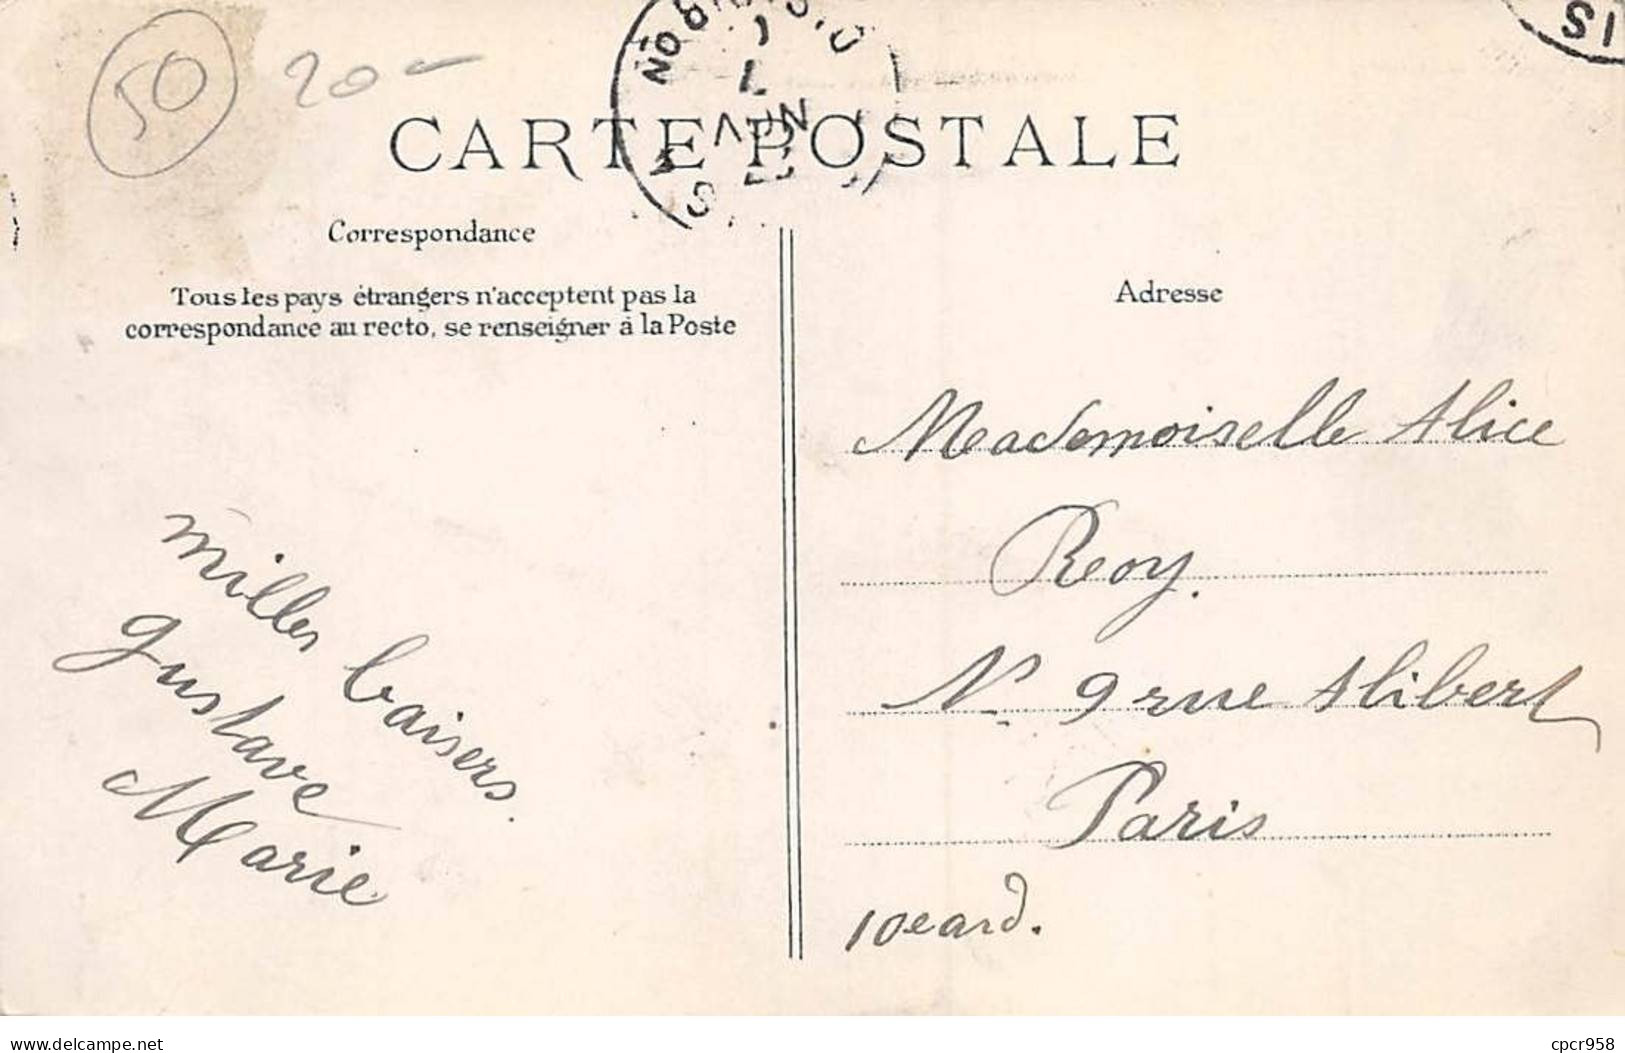 50 20-
CARTE POSTALE
Correspondance
Tous les pays étrangers n'acceptent pas la
correspondance au recto, se renseigner à la Poste
milles baisers.
gustave
Marie
Adresse
Mademoiselle Alice
Roy.
N° 9 rue Alibert
Paris
10e ard.
IS
mille-et-une-cartes.com
cpcr958